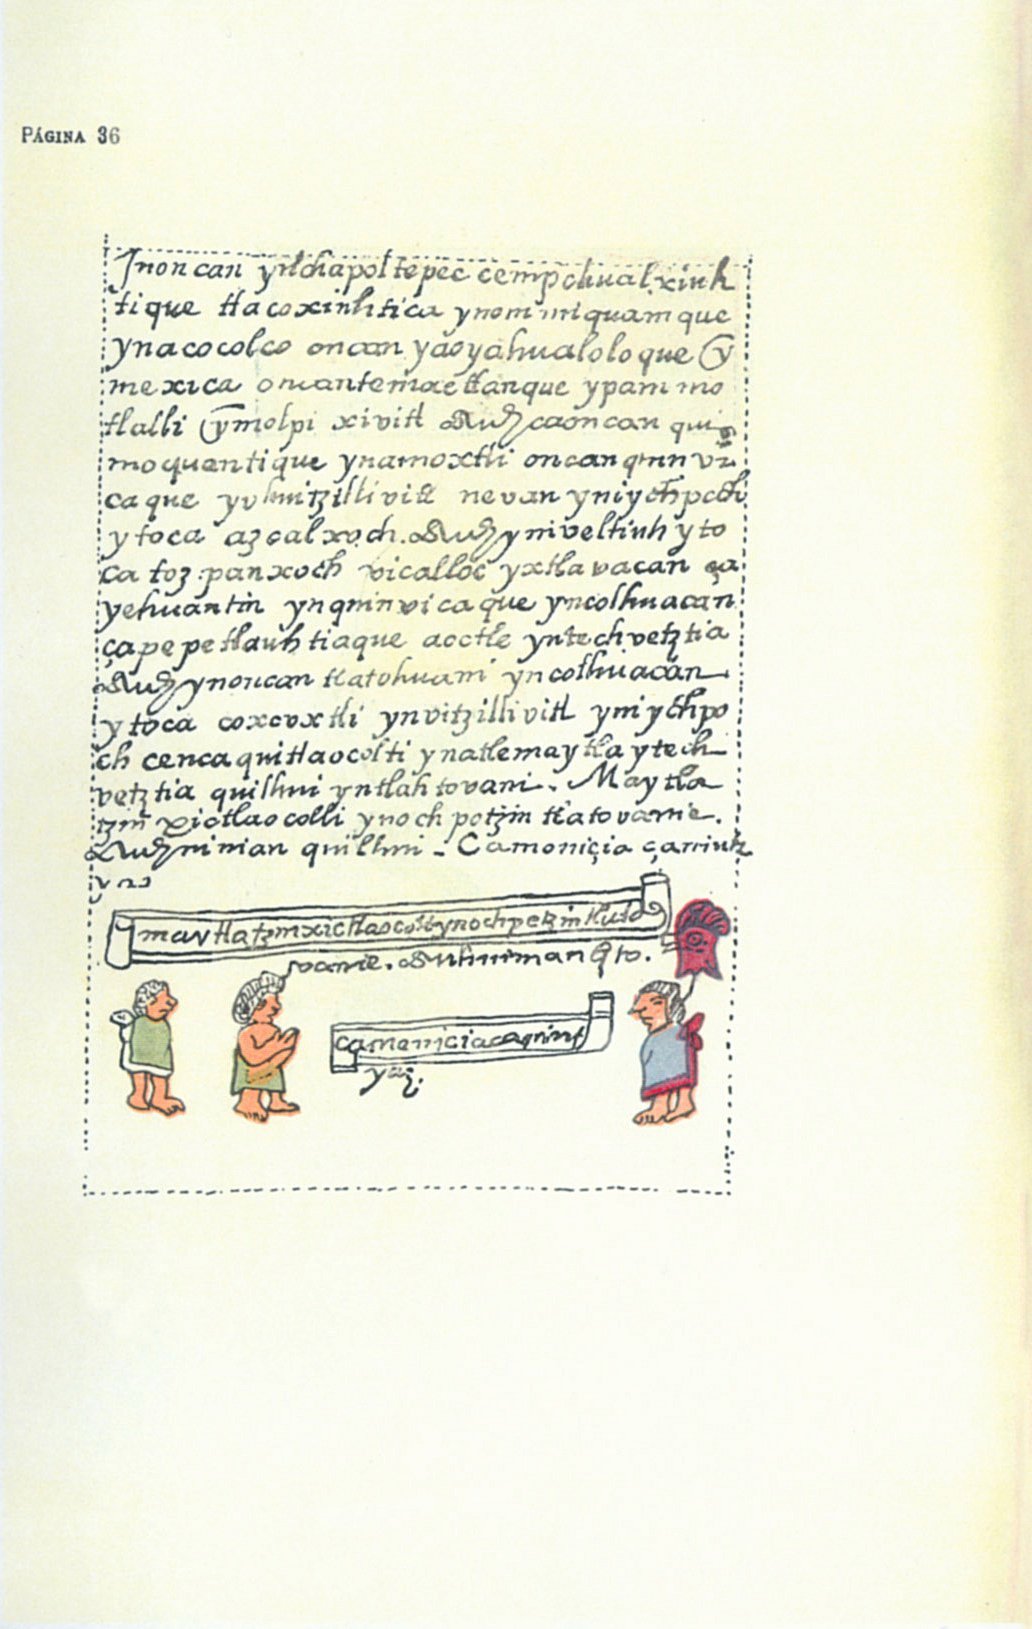 PÁGINA 36
Jnoncan yn chapoltepec cempohualxiuh
tique tlacoxiuhtica ynommiquamque
ynacocolco oncan yaoyahualoloque y̅
mexica oncantemactlanque ypammo
tlalli y̅molpi xivitl Auh caoncan quin
moquentique ynamoxtli oncan qninvi
caque yvhuitzillivitl nevan yniychpoch
ytoca azcalxoch. Auh yniveltiuh yto
ca toz panxoch vicalloc yxtlavacan ça
yehuantin ynqninvicaque yncolhuacan
çapepetlauhtiaque aoctle yntechvetztia
Auh ynoncan tlatohuani yncolhuacan
ytoca coxcoxtli ynvitzillivitl yniychpo
ch cencaquitlaocolti ynatlemaytlaytech
vetztia quilhui yntlahtovani. Maytla
tzin xictlaocolli ynochpotzin tlatovanie.
Auh niman quilhui - Camoniçia çanniuh
yaz
maytlatzinxictlaocolliynochpotzin tlato
vanie. Auhniman q̅to.
camoniciacanniuh
yaz.